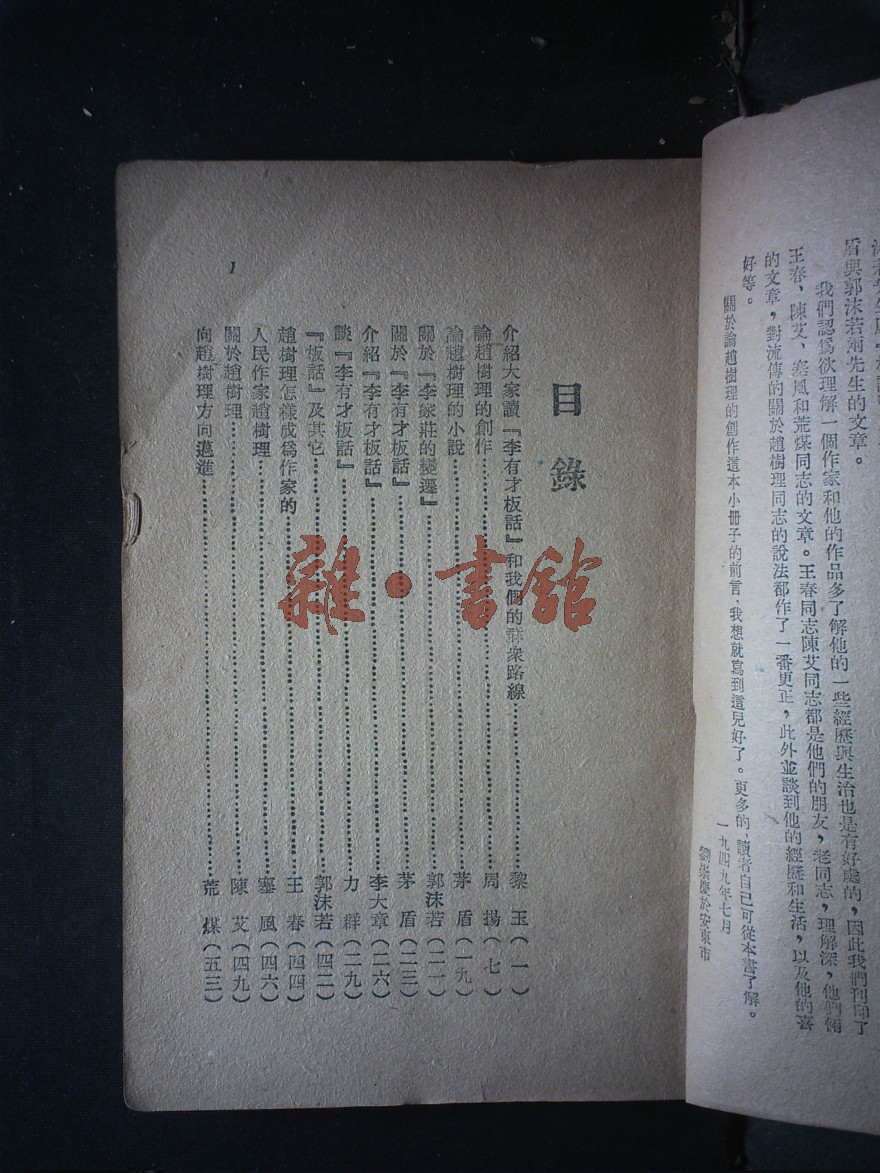 盾與郭沫若兩先生的文章。
我們認爲欲理解一個作家和他的作品多了解他的一些經歷與生活也是有好處的，因此我們刊印了
王春、陳艾、塞風和荒煤同志的文章。王春同志陳艾同志都是他們的朋友，老同志，理解深，他們倆
的文章，對流傳的關於趙樹理同志的說法都作了一番更正，此外並談到他的經歷和生活，以及他的喜
好等。
關於論趙樹理的創作這本小冊子的前言、我想就寫到這兒好了。更多的，讀者自己可從本書了解。
一九四九年七月
劉崇慶於安東市
目錄
介紹大家讀『李有才板話』和我們的羣衆路線 黎玉（一）
論趙樹理的創作 周揚（七）
論趙樹理的小說 茅盾（一九）
關於『李家莊的變遷』 郭沫若（二一）
關於『李有才板話』 茅盾（二三）
介紹『李有才板話』 李大章（二六）
談『李有才板話』 力群（二九）
『板話』及其它 郭沫若（四二）
趙樹理怎樣成爲作家的 王春（四四）
人民作家趙樹理 塞風（四六）
關於趙樹理 陳艾（四九）
向趙樹理方向邁進 荒煤（五三）
1
雜·書館